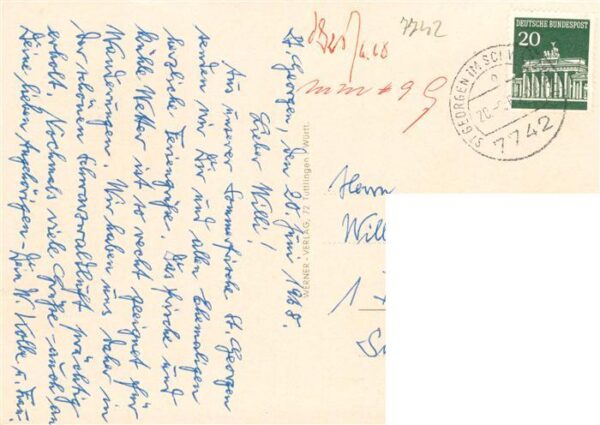 St. Georgen, den 20. Juni 1968.
Lieber Willi!
Aus unserer Sommerfrische St. Georgen
senden wir Dir und allen Ehemaligen
herzliche Feriengrüße. Das frische und
kühle Wetter ist so recht geeignet für
Wanderungen. Wir haben uns daher in
der schönen Schwarzwaldluft prächtig
erholt. Nochmals viele Grüße – auch an
Deine lieben Angehörigen – Dein W. Kolbe u. Frau.
WERNER - VERLAG, 72 Tuttlingen / Württ.
7742
DEUTSCHE BUNDESPOST
20
ST GEORGEN IM SCHW
7742
Herrn
Will
1